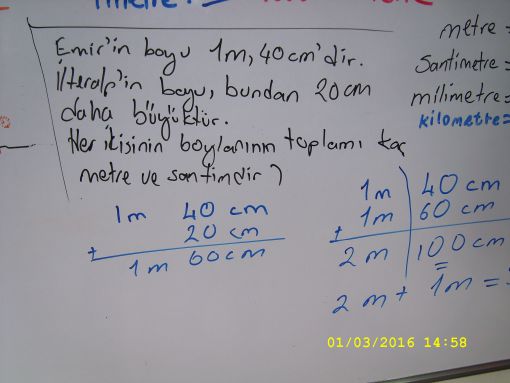 Emir'in boyu 1m, 40cm'dir.
İlteralp'in boyu, bundan 20cm
daha büyüktür.
Her ikisinin boylarının toplamı kaç
metre ve santimdir?
1m 40 cm
20 cm
+
1m 60cm
metre =
Santimetre =
milimetre =
kilometre=
1m 40 cm
+ 1m 60 cm
2 m 100 cm
2 m + 1m =
01/03/2016 14:58